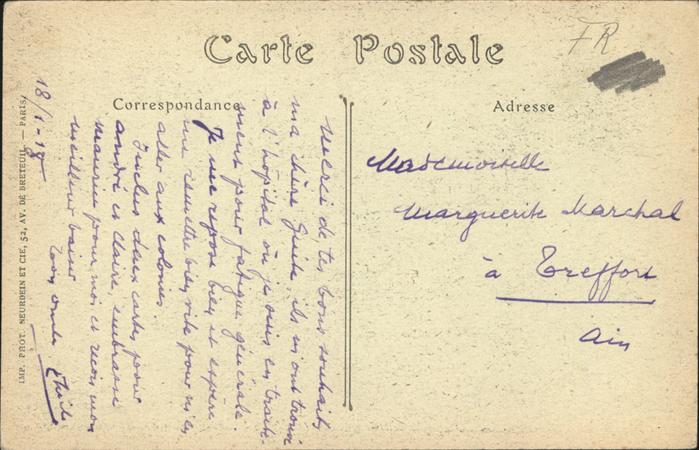 Carte Postale
FR
Correspondance
Adresse
Merci de tes bons souhaits,
ma chère Guite, ils m'ont trouvé
à l'hôpital où je suis en traite-
ment pour fatigue générale.
Je me repose bien et espère
me remettre bien vite pour m'en
aller aux colonies.
Inclus deux cartes pour
André et Claire, embrasse
Maman pour moi et reçois mon
meilleur baiser
Ton oncle
18/1-18
Mademoiselle
Marguerite Marchal
à Treffort
Ain
IMP. PHOT. NEURDEIN ET CIE, 52, AV. DE BRETEUIL. — PARIS